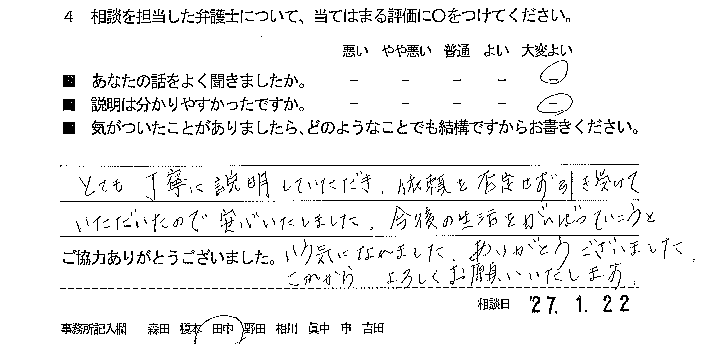 4 相談を担当した弁護士について、当てはまる評価に〇をつけてください。
悪い やや悪い 普通 よい 大変よい
■ あなたの話をよく聞きましたか。 － － － － －
■ 説明は分かりやすかったですか。 － － － － －
■ 気がついたことがありましたら、どのようなことでも結構ですからお書きください。
とても丁寧に説明していただき、依頼を否定せず引き受けて
いただいたので安心いたしました。今後の生活をがんばっていこうと
ご協力ありがとうございました。
いう気になれました。ありがとうございました。
これから よろしくお願いいたします。
相談日 '27. 1. 22
事務所記入欄 森田 榎本 田中 野田 相川 眞中 申 吉田